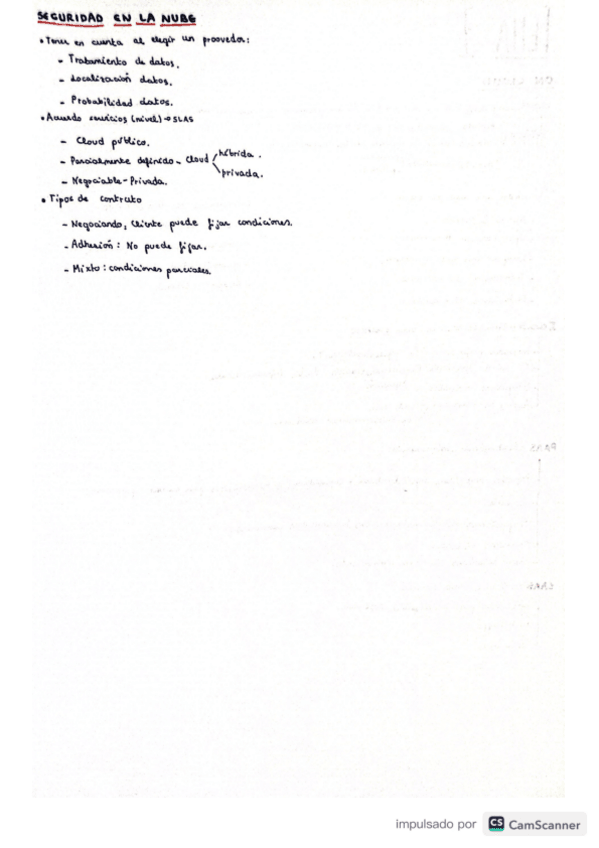 SEGURIDAD EN LA NUBE
• Tener en cuenta al elegir un proovedor:
- Tratamiento de datos.
- Localización datos.
- Probabilidad datos.
• Acuerdo servicios (nivel) → SLAS
- Cloud público.
- Parcialmente definido - Cloud híbrida.
privada.
- Negociable - Privada.
• Tipos de contrato
- Negociando, Cliente puede fijar condiciones.
- Adhesión: No puede fijar.
- Mixto: condiciones parciales.
PAAS
SAAS
impulsado por CS CamScanner